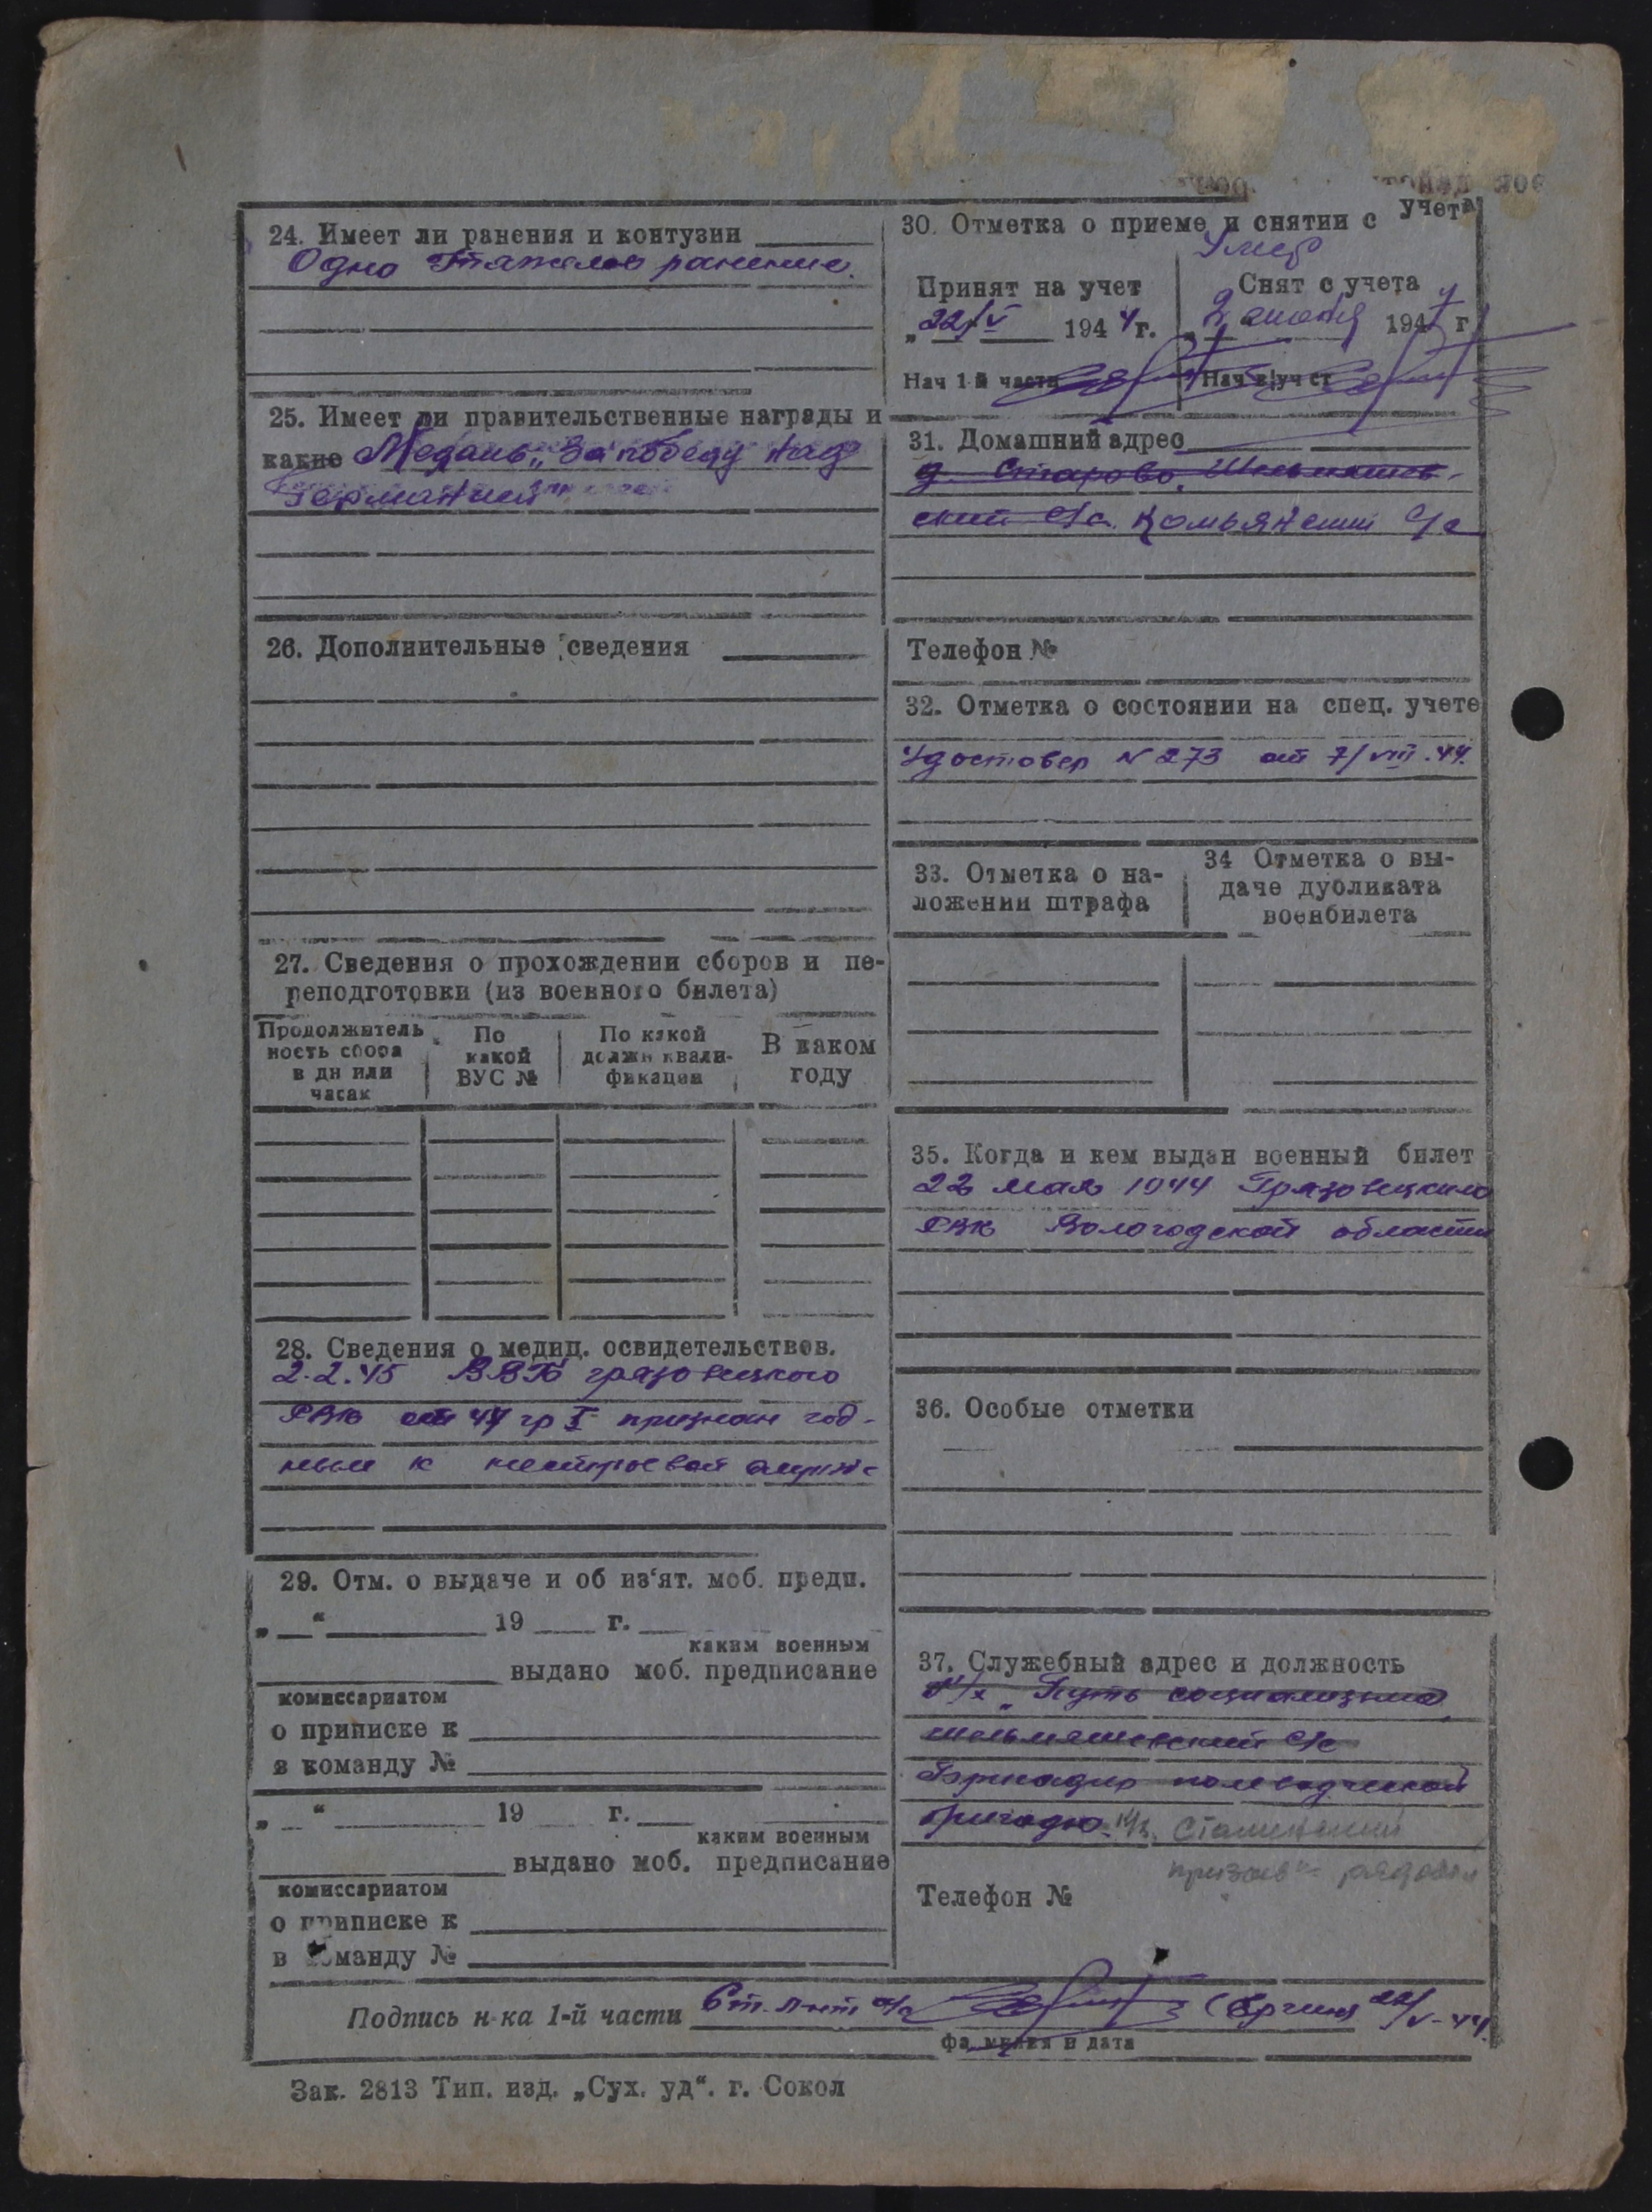 24. Имеет ли ранения и контузии
Одно тяжелое ранение.
25. Имеет ли правительственные награды и
какие Медаль „За победу над
Германией
26. Дополнительные сведения
27. Сведения о прохождении сборов и пе-
реподготовки (из военного билета)
Продолжитель
ность сбора
в дн или
часах
По
какой
ВУС №
По какой
должн квали-
фикации
В каком
году
28. Сведения о медиц. освидетельствов.
2.2.45 ВВК Грязовецкого
РВК гр I признан год-
ным к нестроевой
29. Отм. о выдаче и об из‘ят. моб. предп.
„ “ 19 г.
каким военным
выдано моб. предписание
комиссариатом
о приписке к
в команду №
„ “ 19 г.
каким военным
выдано моб. предписание
комиссариатом
о приписке к
в команду №
30. Отметка о приеме и снятии с учета
Умер
Принят на учет
„22/V 1944г.
Нач 1-й части
Снят с учета
„2 1947 г
Нач в/уч ст
31. Домашний адрес
д. Старово,
ский с/с. Комьянский с/с
Телефон №
32. Отметка о состоянии на спец. учете
Удостовер N 273 от 7/VIII.44.
33. Отметка о на-
ложении штрафа
34 Отметка о вы-
даче дубликата
военбилета
35. Когда и кем выдан военный билет
22 мая 1944 Грязовецким
РВК Вологодской области
36. Особые отметки
37. Служебный адрес и должность
к/х „Путь социализма,
с/с
Бригадир полеводческой
бригады. к/з. Сталинский
призыв" рядовой
Телефон №
Подпись н-ка 1-й части Ст. л-нт а/с 22/V-44.
фамилия и дата
Зак. 2813 Тип. изд. „Сух. уд“. г. Сокол